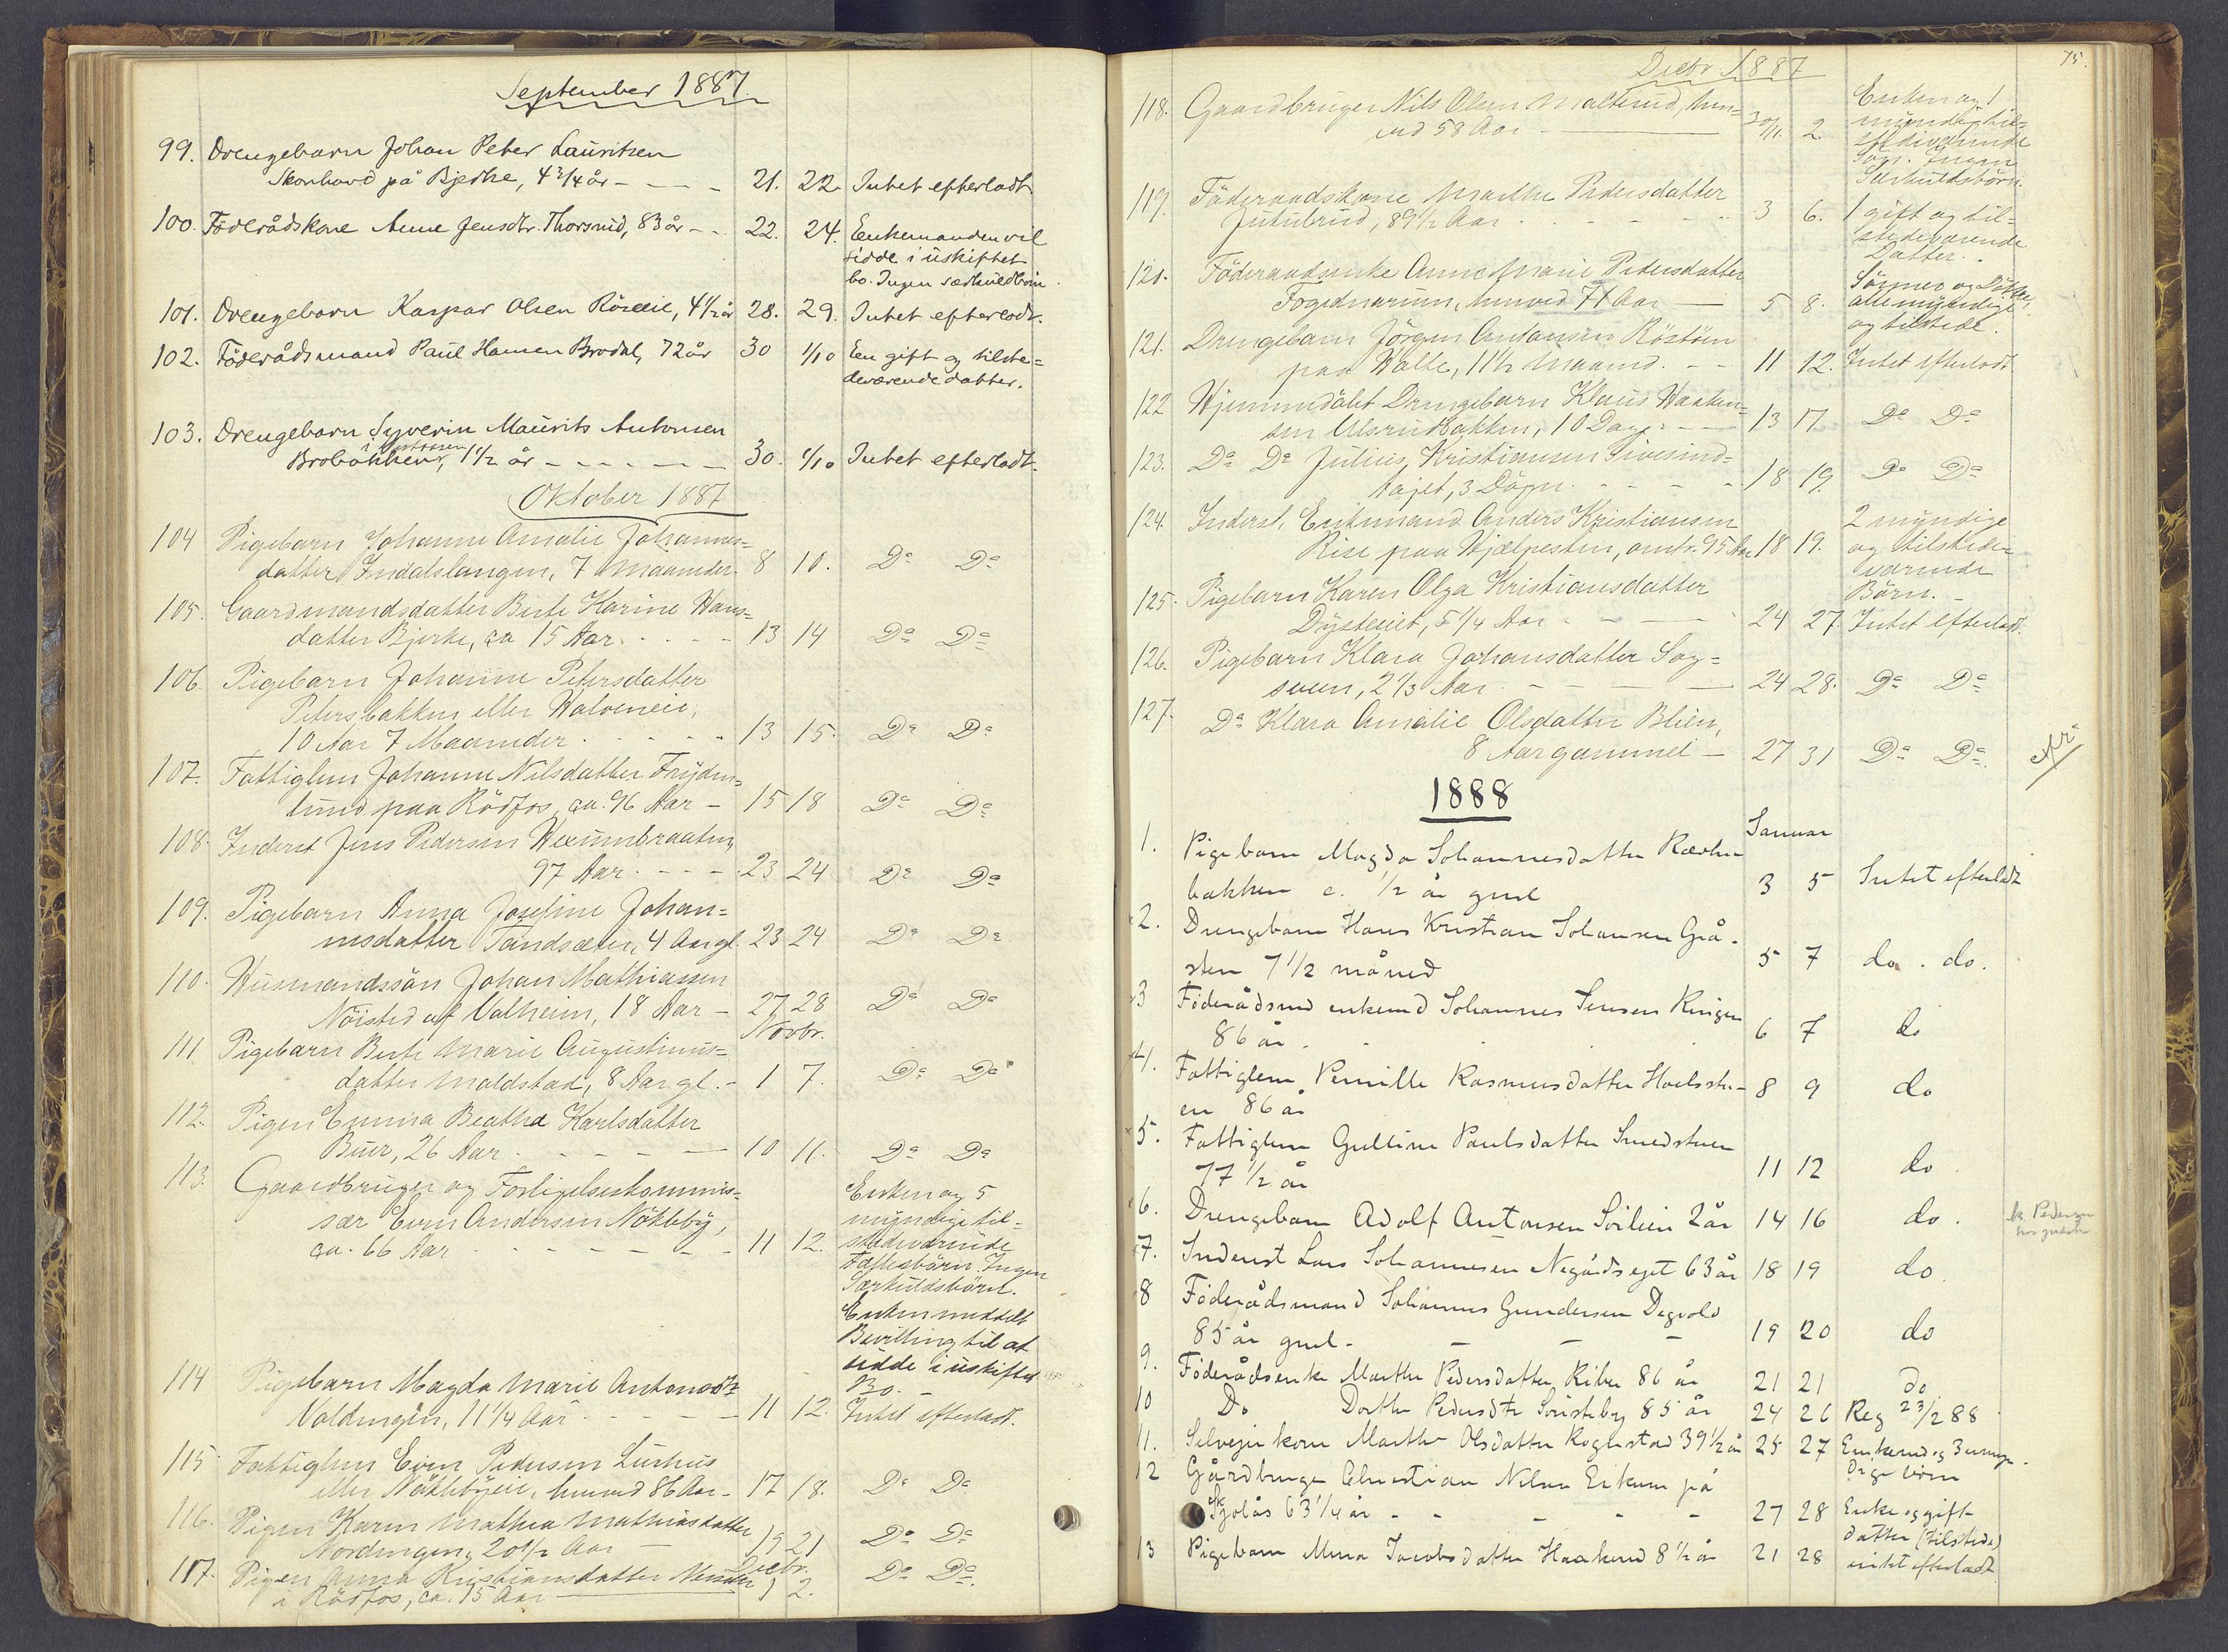 September 1887.
99. Drengebarn Johan Peter Lauritsen
Skonhovd på Bjerke, 4 3/4 år - - - 21. 22. Intet efterladt
100. Föderådskone Anne Jensdtr. Thorsrud, 83 år - - 22. 24. Enkemanden vil
sidde i uskiftet
bo. Ingen særkuldbörn.
101. Drengebarn Kaspar Olsen Röseie, 4 1/2 år 28. 29. Intet efterladt.
102. Föderådsmand Paul Hansen Brodal, 72 år 30 1/10 En gift og tilste=
deværende datter.
103. Drengebarn Syverin Maurits Antonsen
Brobakken, 1 1/2 år - - - - - 30. 1/10 Intet efterladt.
Oktober 1887
104 Pigebarn Johanne Amalie Johannes=
datter Indalslangen, 7 Maaneder. 8 10. Do Do
105. Gaardmandsdatter Berte Karine Hans=
datter Bjerke, ca 15 Aar. - - - 13 14 Do Do
106. Pigebarn Johanne Petersdatter
Petersbakken eller Halveneie,
10 Aar 7 Maaneder - - - - 13 15. Do Do
107. Fattiglem Johanne Nilsdatter Fryden=
lund paa Rödfos, ca. 96 Aar - 15 18 Do Do
108. Inderst Jens Pedersen Hexumbraaten,
97 Aar. - - - - 23 24 Do Do
109. Pigebarn Anna Josefine Johan=
nesdatter Tandsæter, 4 Aar gl. 23 24 Do Do
110. Husmandssön Johan Mathiassen
Nöisted af Valheim, 18 Aar - 27 28 Do Do
Novbr.
111. Pigebarn Berte Marie Augustinus=
datter Maldstad, 8 Aar gl. - 1 7. Do Do
112. Pigen Emma Beatha Karlsdatter
Buer, 26 Aar - - - - - 10 11. Do Do
113. Gaardbruger og Forligelseskommis=
sær Even Andersen Nökleby,
ca. 66 Aar - - - - - - 11 12. Enken og 5
myndige til=
stedeværende
Fællesbörn. Ingen
Særkuldsbörn.
Enken meddelt
Bevilling til at
sidde i uskiftet
Bo. -
114 Pigebarn Magda Marie Antonsdtr
Valdengen, 11 1/4 Aar - - - - 11 12. Intet efterladt.
115 Fattiglem Even Pedersen Lushus
eller Nöklebyeie, henved 86 Aar - 17 18. Do Do
116. Pigen Karen Mathea Mathiasdatter
Nordengen, 20 1/2 Aar - 19 21 Do Do
Decbr.
117. Pigen Anna Kristiansdatter
i Rödfos, ca. 15 Aar 1 2. Do Do
75.
Decbr. 1887
118. Gaardbruger Nils Olsen Malterud, hen=
ved 58 Aar - 30/11. 2. Enken og 1
myndig til=
stedeværende
Sön. Ingen
Særkuldsbörn.
119. Föderaadskone Marthe Pedersdatter
Jutulrud, 89 1/2 Aar - - - - 3 6. 1 gift og til=
stedeværende
Datter.
120. Föderaadsenke Anne Marie Pedersdatter
henved 71 Aar - 5 8. Sönner og Dötre,
alle myndige
og tilstede.
121. Drengebarn Jörgen Antonsen Röstöen
paa Balke, 11 1/2 Maaned. - - 11 12. Intet efterladt
122 Hjemmedöbt Drengebarn Klaus Haaken=
sen Ulsrudbakken, 10 Dage. - - 13 17 Do Do
123. Do Do Julius Kristiansen Sivesind=
hajet, 3 Dögn. - - - - 18 19. Do Do
124. Inderst, Enkemand Anders Kristiansen
Rise paa Hjælpesten, omtr. 95 Aar 18 19. 2 myndige
og tilstede=
værende
Börn. -
125. Pigebarn Karen Olga Kristiansdatter
Dysteeiet, 5 1/4 Aar - - - 24 27. Intet efterladt.
126. Pigebarn Klara Johansdatter Sog=
stuen, 2 1/3 Aar. - - - 24 28. Do Do
127. Do Klara Amalie Olsdatter Blien,
8 Aar gammel - 27 31 Do Do
1888
Januar
1. Pigebarn Magda Johannesdatter
bakken c. 1/2 år gml 3 5 Intet efterladt
2. Drengebarn Hans Kristian Johansen Grå-
sten 7 1/2 måned 5 7 do. do.
3 Föderådsmd enkemd Johannes Jensen Ringen
86 år. 6 7 do
4. Fattiglem Pernille Rasmusdatter Hoelsstu-
en 86 år 8 9 do
5. Fattiglem Gulline Paulsdatter Smedstuen
77 1/2 år 11 12 do
6. Drengebarn Adolf Antonsen Söileie 2 år 14 16 do.
7. Inderst Lars Johannesen Negårdseget 63 år 18 19 do
8 Föderådsmand Johannes Gundersen Degvold
85 år gml. - - - 19 20 do
9. Föderådsenke Marthe Pedersdatter Ribe 86 år 21 21 do
10 Do Dorthe Pedersdtr Söristeby 85 år 24 26 Reg 23/2 88
11. Selveierkone Marthe Olsdatter Rognstad 39 1/2 år 25 27 Enkemd og 3 umyn-
dige börn
12 Gårdbruger Christian Nilsen Eikum på
Skjolås 63 1/4 år - - - - - 27 28 Enke og gift
datter (tilstede)
13 Pigebarn Mina Jacobsdatter Haakerud 8 1/2 år 21 28 intet efterladt